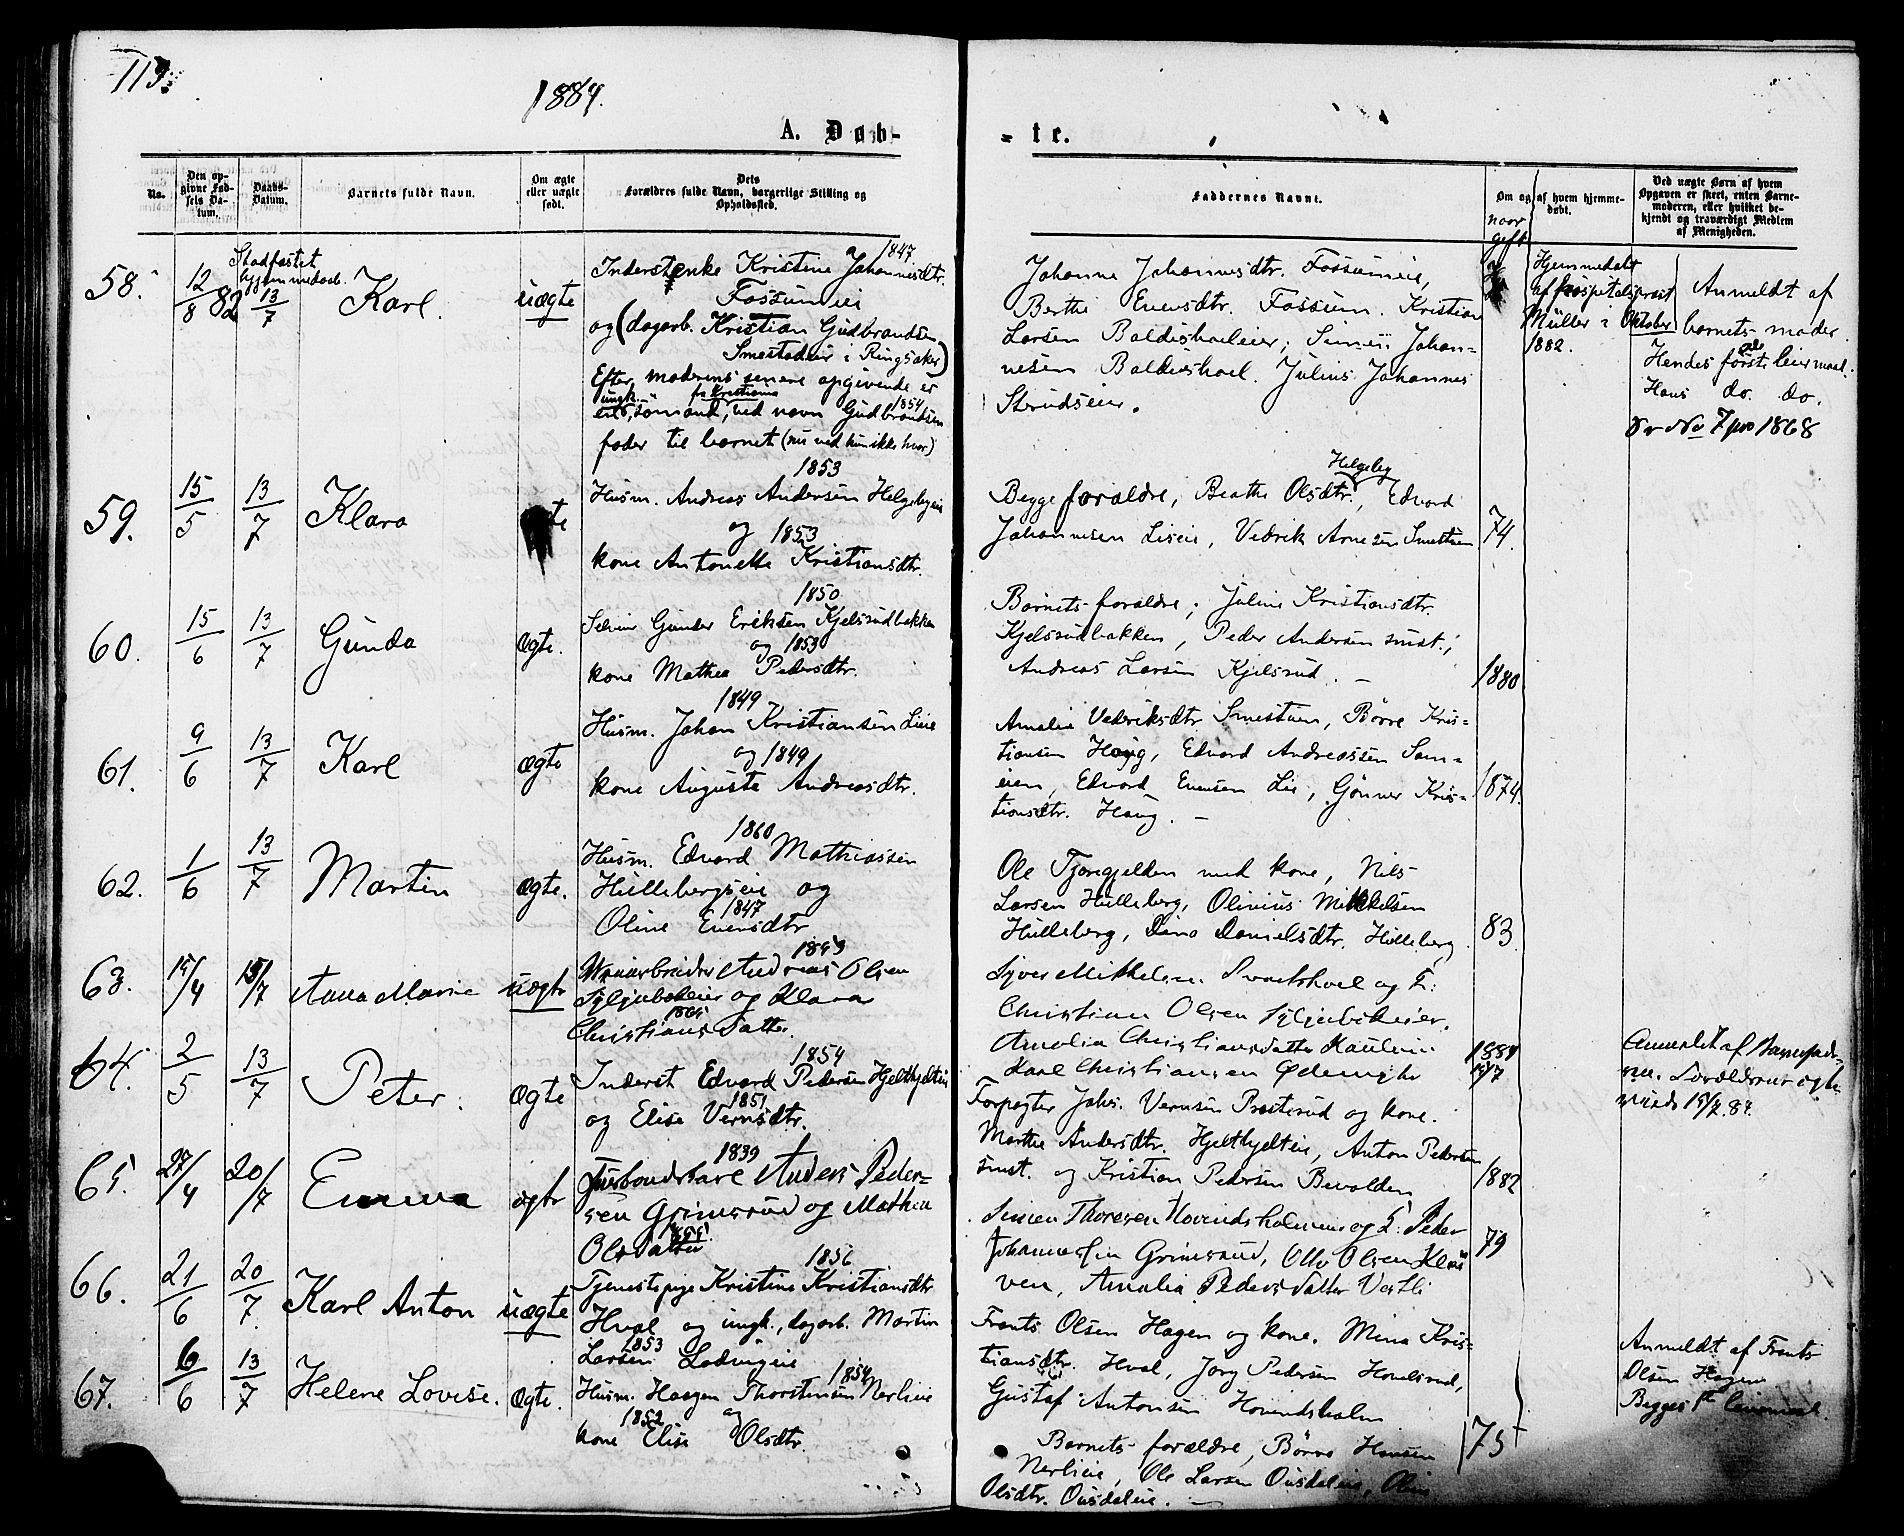 113.
1884.
A. Døb-
- te.
No.
Den op-
givne Fød-
sels Da-
tum.
Daabs-
Datum.
Barnets fulde Navn.
Om ægte
eller uægte
født.
Dets
Forældres fulde Navn, borgerlige Stilling og
Opholdssted.
Faddernes Navne.
naar
gift
Om og af hvem hjemme-
døbt.
Ved uægte Børn af hvem
Opgaven er skeet, enten Barne-
moderen, eller hvilket be-
kjendt og troværdigt Medlem
af Menigheden.
58.
12/8 82
Stadfæstet
hjemmedaab
13/7
Karl.
uægte
1847
Inderstenke Kristine Johannesdtr.
Fossumeie
og (dagarb. Kristian Gudbrandsen
Smestadeie i Ringsaker)
Efter moderens senere opgivende er
ungk. fr. Kristiania
en sømand, ved navn Gudbrandsen 1854
fader til barnet (nu ved hun ikke hvor)
Johanne Johannesdtr. Fossumeie,
Berthe Evensdtr. Fossum. Kristian
Larsen Baldisholeier, Johan-
nesen Baldishoel. Julius Johannes
Sterudseie.
Hjemmedøbt
af hospitalsprest
Müller i Oktober
1882.
Anmeldt af
barnets moder.
Hendes 2de leiermaal.
Hans do. do.
No 7 pro 1868
59.
15/5
13/7
Klara
1853
Husm. Andreas Andersen Helgebyeie
og 1853
kone Antonette Kristiansdtr.
Begge forældre, Beathe Olsdtr. Helgeby, Edvard
Johannesen Lieeie, Vedrik Arnesen Smestuen
74.
60.
15/6
13/7
Gunda
ægte.
1850
Gunder Eriksen Kjelsrudbakken
og 1853
kone Mathea Pedersdtr.
Barnets forældre, Juline Kristiansdtr.
Kjelsrudbakken, Peder Andersen smst.,
Andreas Larsen Kjelsrud. -
1880
61.
9/6
13/7
Karl
ægte
1849
Husm. Johan Kristiansen Lieie
og 1849
kone Auguste Andreasdtr.
Amalie Vedriksdtr Smestuen, Børre Kris-
tiansen Haug, Edvard Andreassen Sam-
eien, Edvard Evensen Lie, Gønner Kris-
tiansdtr. Haug. -
1874.
62.
1/6
13/7
Martin
ægte.
1860
Husm. Edvard Mathiassen
Hullebergseie og
1847
Oline Evensdtr
Ole Tjøregjelden med kone, Nils
Larsen Hulleberg, Olinius Mikkelsen
Hulleberg, Dina Danielsdtr. Hulleberg.
83.
63.
15/4
15/7
Anna Marie
uægte
Andreas Olsen
og Klara
Christiansdatter
Syver Mikkelsen Svartshoel og H:
Christian Olsen
Amalia Christiansdatter
Karl Christiansen
1884
15/7
Anmeldt af Barnefade-
ren. Forældrene ægte-
viede 15/7.84.
64.
2/5
13/7
Peter.
Ægte
1854
Inderst Edvard Pedersen Hjelthjelteie
1851
og Elise Vernsdtr.
Forpagter Johs. Vernsen Prestrud og kone.
Marthe Andersdtr. Hjelthjelteie, Anton Pedersen
smst. og Kristian Pedersen Bevolden
1882
65.
27/4
20/7
Emma
ægte
1839
Anders Peder-
sen Grimsrud og Mathea
Olsdatter
Simen Thoresen Hovindsholm og H: Peder
Johannessen Grimsrud, Otto Olsen Kløv
ven, Amalia Pedersdatter Vestli
79
66.
21/6
20/7
Karl Anton
uægte
1856
Tjenestepige Kristine Kristiansdtr
Hval og ungk., dagarb. Martin
1853
Larsen
Frants Olsen Hagen og kone. Mina Kris-
tiansdtr. Hval, Jørg Pedersen Honelsrud,
Gustaf Antonsen Hovindsholm
Anmeldt af Frants
Olsen Hagen
Begges 1ste leiermaal.
67.
6/6
13/7
Helene Lovise.
Ægte.
1854
Husm. Haagen Thorstensen Nerlieie
1852 og
kone Elise Olsdtr.
Barnets forældre, Børre Hansen
Nerlieie, Ole Larsen Ousdaleie, Oline
Olsdtr. Ousdaleie. -
75